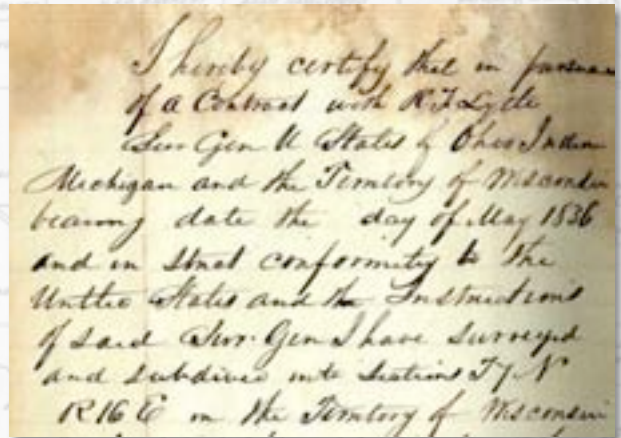 I hereby certify that in pursuance
of a Contract with R T Lytle
Sur Gen U States of Ohio Indian
Michigan and the Territory of Wisconsin
bearing date the day of May 1836
and in strict conformity to the
United States and the Instructions
of said Sur. Gen I have surveyed
and subdivided into Sections T 7 N
R 16 E in the Territory of Wisconsin